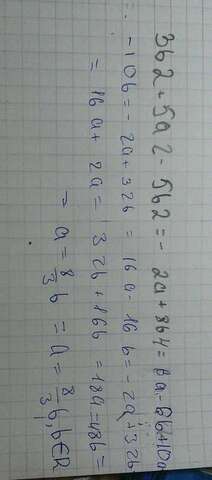 3b2+5a2-5b2=-2a+8b4=8a-8b+10a
-10b=-2a+32b=16a-16b=-2a+32b
=16a+2a=32b+16b=18a=48b=
→ a=8/3b = a=8/3b, b∈R